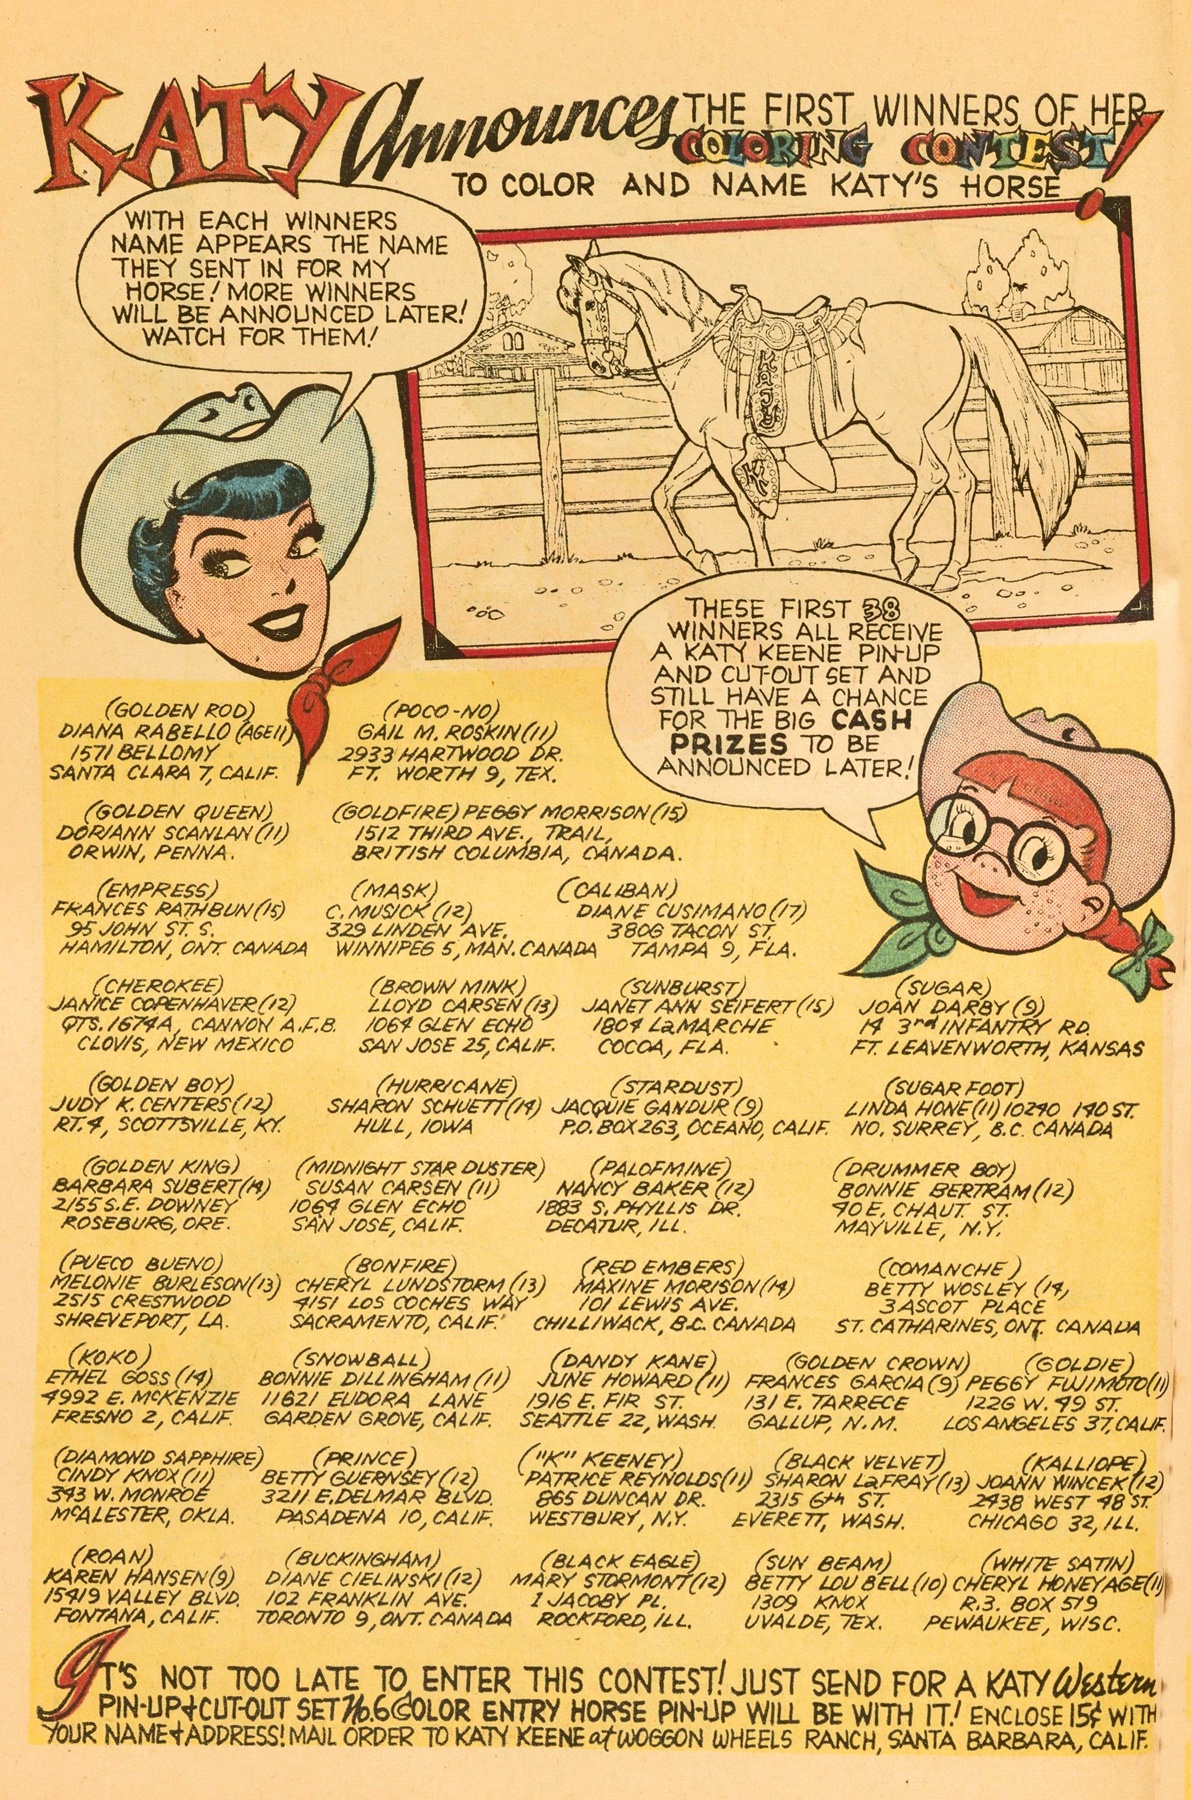 KATY Announces THE FIRST WINNERS OF HER
COLORING CONTEST!
TO COLOR AND NAME KATY'S HORSE
WITH EACH WINNERS
NAME APPEARS THE NAME
THEY SENT IN FOR MY
HORSE! MORE WINNERS
WILL BE ANNOUNCED LATER!
WATCH FOR THEM!
KATY
K
THESE FIRST 38
WINNERS ALL RECEIVE
A KATY KEENE PIN-UP
AND CUT-OUT SET AND
STILL HAVE A CHANCE
FOR THE BIG CASH
PRIZES TO BE
ANNOUNCED LATER!
(GOLDEN ROD)
DIANA RABELLO (AGE 11)
1571 BELLOMY
SANTA CLARA 7, CALIF.
(POCO-NO)
GAIL M. ROSKIN (11)
2933 HARTWOOD DR.
FT. WORTH 9, TEX.
(GOLDEN QUEEN)
DORIANN SCANLAN (11)
ORWIN, PENNA.
(GOLDFIRE) PEGGY MORRISON (15)
1512 THIRD AVE., TRAIL,
BRITISH COLUMBIA, CANADA.
(EMPRESS)
FRANCES RATHBUN (15)
95 JOHN ST. S.
HAMILTON, ONT. CANADA
(MASK)
C. MUSICK (12)
329 LINDEN AVE.
WINNIPEG 5, MAN. CANADA
(CALIBAN)
DIANE CUSIMANO (17)
3806 TACON ST.
TAMPA 9, FLA.
(CHEROKEE)
JANICE COPENHAVER (12)
QTS. 1674A, CANNON A.F.B.
CLOVIS, NEW MEXICO
(BROWN MINK)
LLOYD CARSEN (13)
1064 GLEN ECHO
SAN JOSE 25, CALIF.
(SUNBURST)
JANET ANN SEIFERT (15)
1804 LaMARCHE
COCOA, FLA.
(SUGAR)
JOAN DARBY (9)
14 3rd INFANTRY RD.
FT. LEAVENWORTH, KANSAS
(GOLDEN BOY)
JUDY K. CENTERS (12)
RT. 4, SCOTTSVILLE, KY.
(HURRICANE)
SHARON SCHUETT (14)
HULL, IOWA
(STARDUST)
JACQUIE GANDUR (9)
P.O. BOX 263, OCEANO, CALIF.
(SUGAR FOOT)
LINDA HONE (11) 10240 140 ST.
NO. SURREY, B.C. CANADA
(GOLDEN KING)
BARBARA SUBERT (14)
2155 S.E. DOWNEY
ROSEBURG, ORE.
(MIDNIGHT STAR DUSTER)
SUSAN CARSEN (11)
1064 GLEN ECHO
SAN JOSE, CALIF.
(PALOFMINE)
NANCY BAKER (12)
1883 S. PHYLLIS DR.
DECATUR, ILL.
(DRUMMER BOY)
BONNIE BERTRAM (12)
40 E. CHAUT. ST.
MAYVILLE, N.Y.
(PUECO BUENO)
MELONIE BURLESON (13)
2515 CRESTWOOD
SHREVEPORT, LA.
(BONFIRE)
CHERYL LUNDSTORM (13)
4151 LOS COCHES WAY
SACRAMENTO, CALIF.
(RED EMBERS)
MAXINE MORISON (14)
101 LEWIS AVE.
CHILLIWACK, B.C. CANADA
(COMANCHE)
BETTY WOSLEY (14,
3 ASCOT PLACE
ST. CATHARINES, ONT. CANADA
(KOKO)
ETHEL GOSS (14)
4992 E. McKENZIE
FRESNO 2, CALIF.
(SNOWBALL)
BONNIE DILLINGHAM (11)
11621 EUDORA LANE
GARDEN GROVE, CALIF.
(DANDY KANE)
JUNE HOWARD (11)
1916 E. FIR ST.
SEATTLE 22, WASH.
(GOLDEN CROWN)
FRANCES GARCIA (9)
131 E. TARRECE
GALLUP, N.M.
(GOLDIE)
PEGGY FUJIMOTO (11)
1226 W. 49 ST.
LOS ANGELES 37, CALIF.
(DIAMOND SAPPHIRE)
CINDY KNOX (11)
343 W. MONROE
McALESTER, OKLA.
(PRINCE)
BETTY GUERNSEY (12)
3211 E. DELMAR BLVD.
PASADENA 10, CALIF.
("K" KEENEY)
PATRICE REYNOLDS (11)
865 DUNCAN DR.
WESTBURY, N.Y.
(BLACK VELVET)
SHARON LaFRAY (13)
2315 6th ST.
EVERETT, WASH.
(KALLIOPE)
JOANN WINCEK (12)
2438 WEST 48 ST.
CHICAGO 32, ILL.
(ROAN)
KAREN HANSEN (9)
15419 VALLEY BLVD.
FONTANA, CALIF.
(BUCKINGHAM)
DIANE CIELINSKI (12)
102 FRANKLIN AVE.
TORONTO 9, ONT. CANADA
(BLACK EAGLE)
MARY STORMONT (12)
1 JACOBY PL.
ROCKFORD, ILL.
(SUN BEAM)
BETTY LOU BELL (10)
1309 KNOX
UVALDE, TEX.
(WHITE SATIN)
CHERYL HONEYAGE (11)
R.3. BOX 579
PEWAUKEE, WISC.
IT'S NOT TOO LATE TO ENTER THIS CONTEST! JUST SEND FOR A KATY Western
PIN-UP + CUT-OUT SET No. 6 COLOR ENTRY HORSE PIN-UP WILL BE WITH IT! ENCLOSE 15¢ WITH
YOUR NAME + ADDRESS! MAIL ORDER TO KATY KEENE at WOGGON WHEELS RANCH, SANTA BARBARA, CALIF.